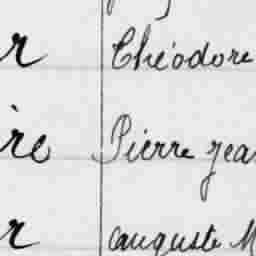 r Théodore
ire Pierre Jea
r Auguste M